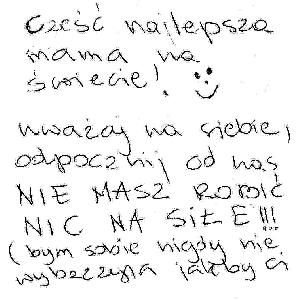 cześć najlepsza
mama na
świecie!
uważaj na siebie,
odpocznij od nas
NIE MASZ ROBIĆ
NIC NA SIŁE!!!
(bym sobie nigdy nie
wybaczyła jakby ci